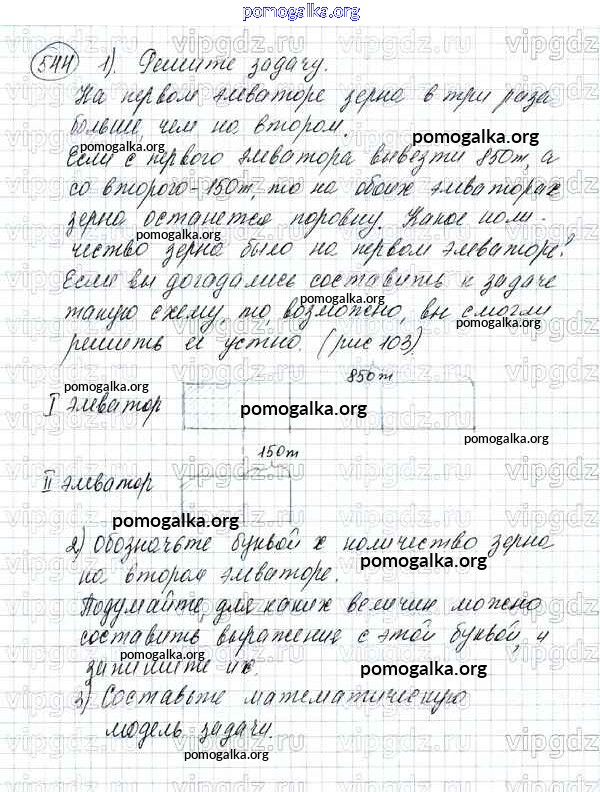 pomogalka.org
544 1). Решите задачу.
На первом элеваторе зерна в три раза
больше, чем на втором.
pomogalka.org
pomogalka.org
Если с первого элеватора вывезти 850т, а
со второго-150т, то на обоих элеваторах
pomogalka.org
зерна останется поровну. Какое коли-
pomogalka.org
чество зерна было на первом элеваторе?
Если вы догадались составить к задаче
pomogalka.org
такую схему, то, возможно, вы смогли
pomogalka.org
решить её устно. (рис 103).
850т
pomogalka.org
I элеватор
pomogalka.org
pomogalka.org
150т
II элеватор
pomogalka.org
2) Обозначьте буквой х количество зерна
на втором элеваторе.
pomogalka.org
Подумайте, для каких величин можно
составить выражение с этой буквой, и
запишите их.
pomogalka.org
pomogalka.org
3) Составьте математическую
модель задачи.
pomogalka.org
vipgdz.ru